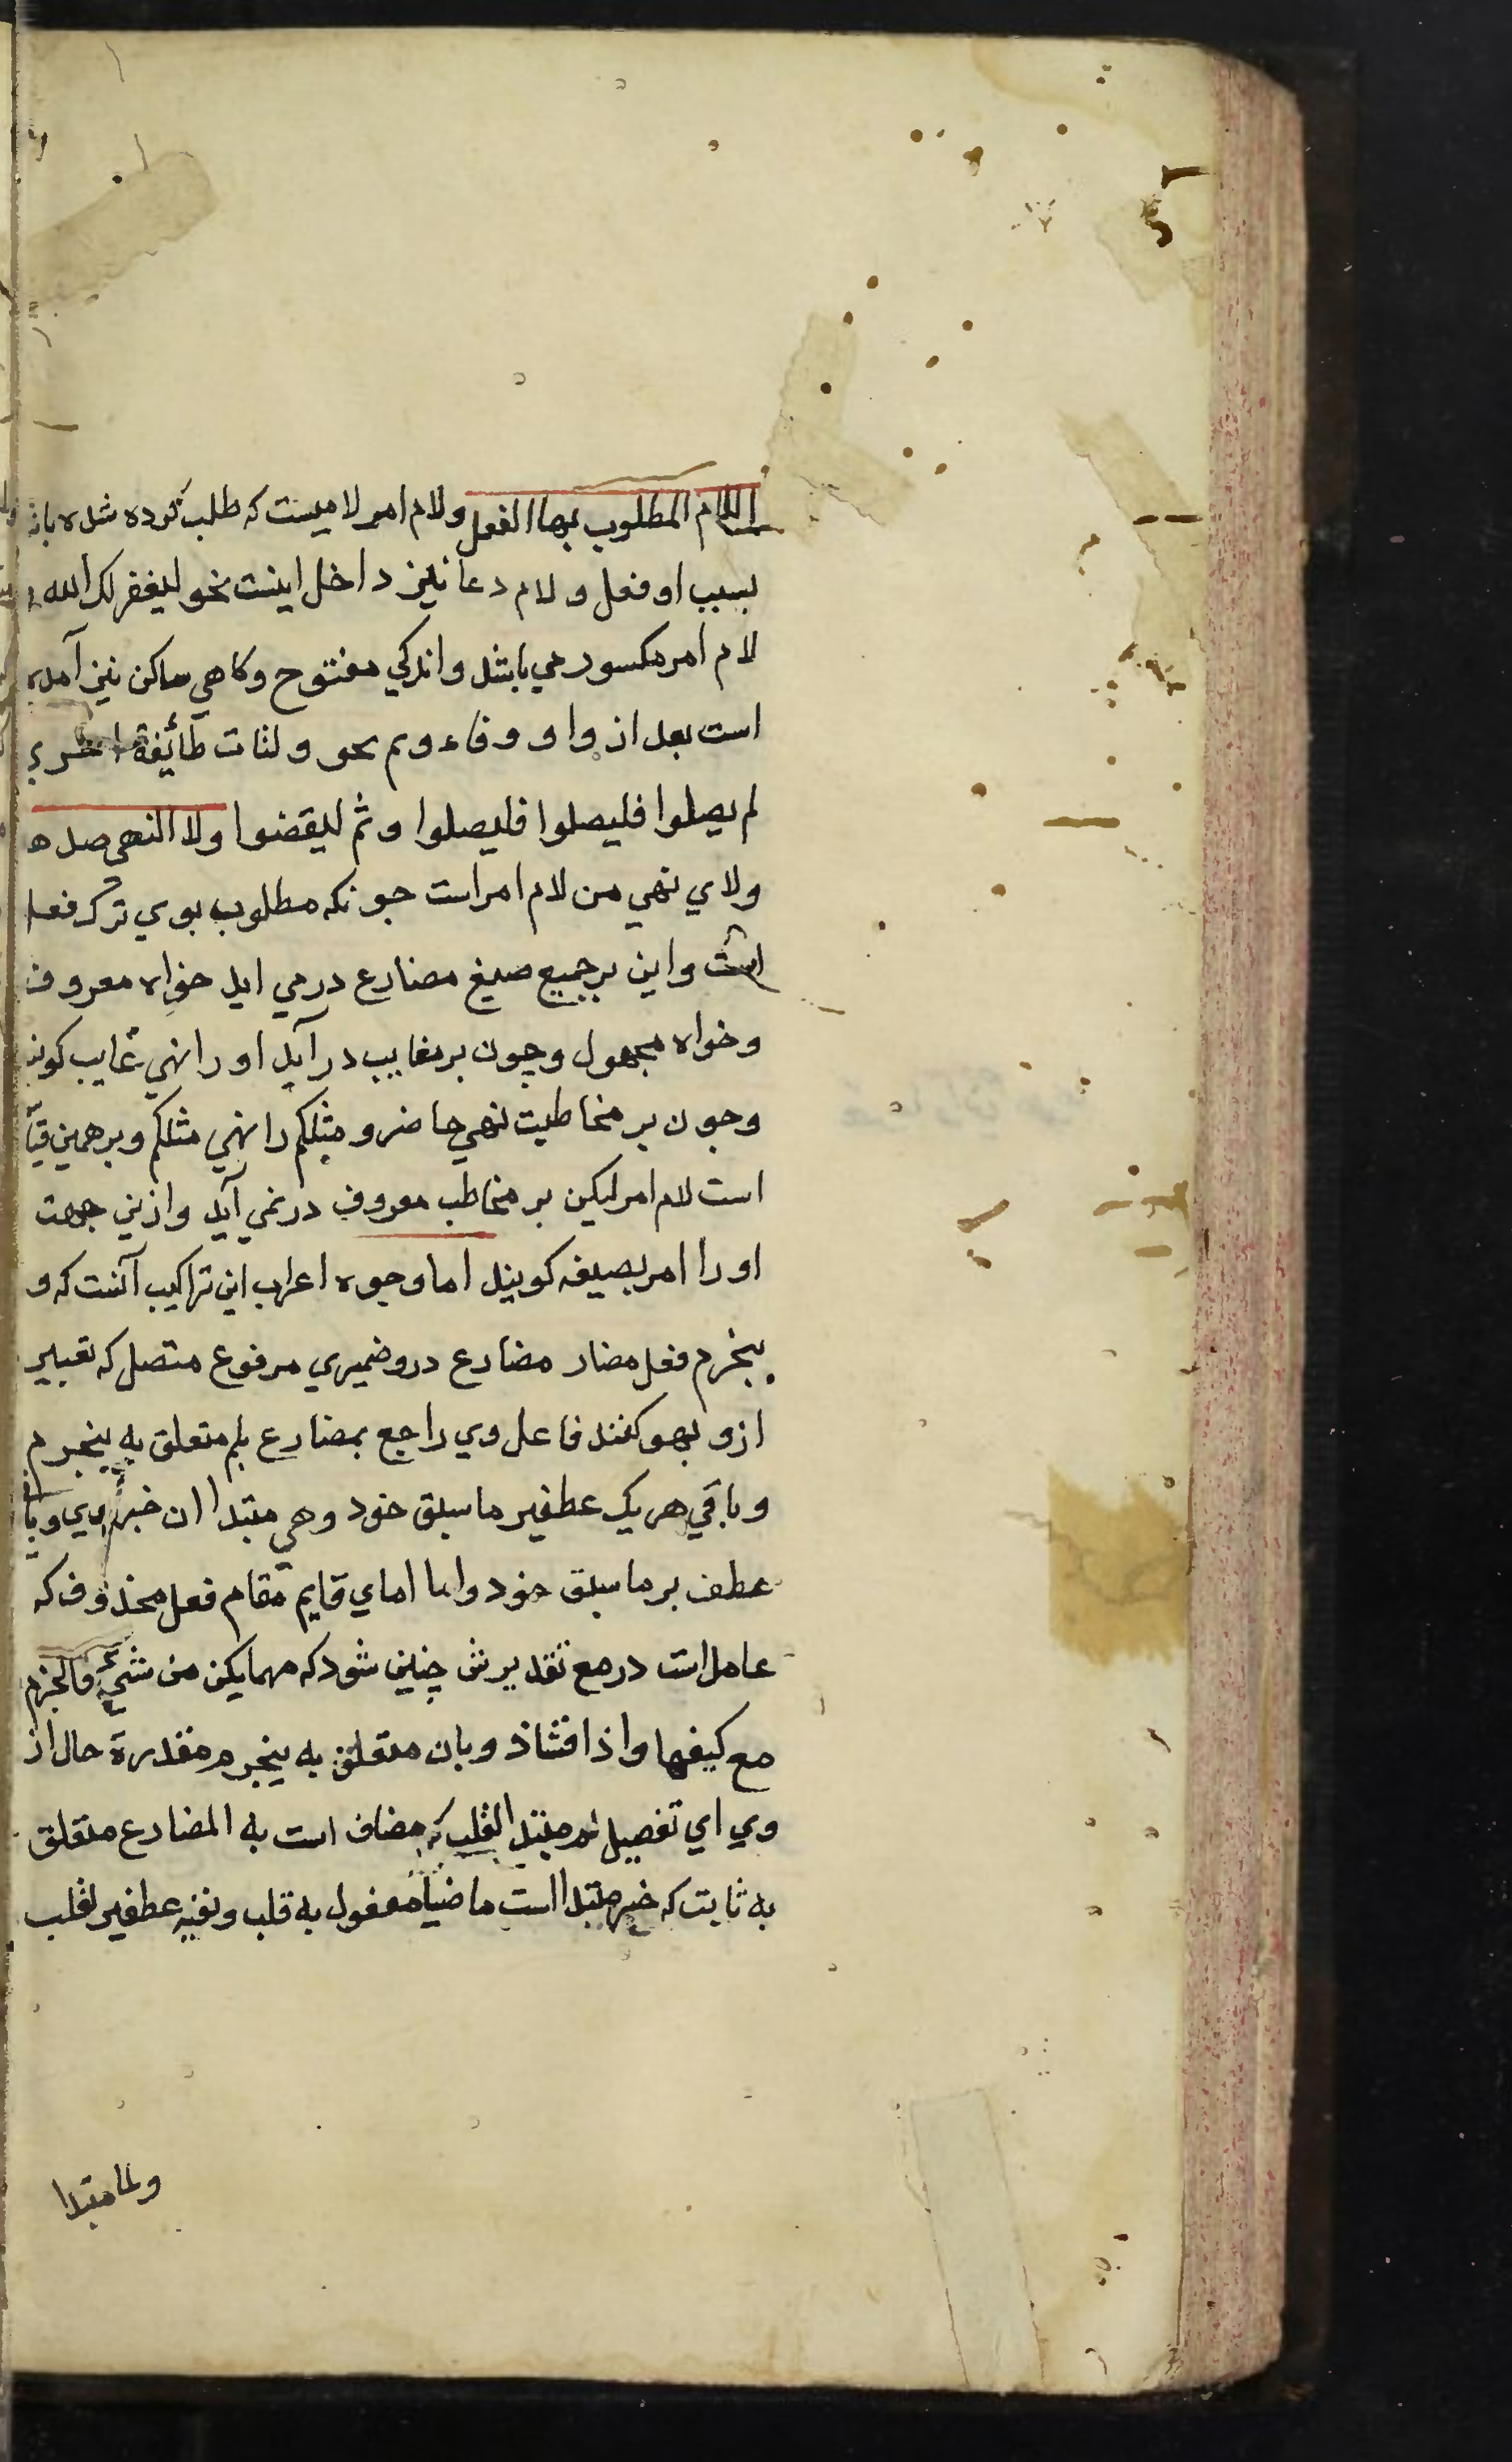 اللام المطلوب بها الفعل ولام امر لامیست که طلب کرده شده بان
بسبب او فعل ولام دعا نیز داخل اینست نحو لیغفر لک الله
لام امر مکسور می باشد واندکي مفتوح وکاهي ساکن نیز آمده
است بعد از واو وفاء وثم نحو ولتات طائفة اخري
لم یصلوا فلیصلوا فلیصلوا وثم لیقضوا ولا النهی ضده
ولاي نهي من لام امر است جونکه مطلوب بوي ترک فعل
است واین بر جمیع صیغ مضارع در می اید خواه معروف
وخواه مجهول وجون بر مغایب در آید او را نهي غایب کوند
وجون بر مخاطبت نهي حاضر ومتکلم را نهي متکلم وبر همین قیا
است لام امر لیکن بر مخاطب معروف در نمي آید وازین جهت
او را امر بصیغه کویند اما وجوه اعراب این تراکیب آنست که و
ینجزم فعل مضار مضارع درو ضمیري مرفوع متصل که تعبیر
ازو بهو کنند فاعل وي راجع بمضارع بلم متعلق به ینجزم
وباقي هر یک عطفیر ما سبق خود وهي مبتدا ان خبر وي وبا
عطف بر ما سبق خود واما اماي قایم مقام فعل محذوف که
عامل است در مع تقدیرش چنین شود که مهما یکن من شيء فالجزم
مع کیفها واذا فشاذ وبان متعلق به ینجزم مقدرة حال از
وي اي تفصیل لم مبتدا لقلب که مضاف است به المضارع متعلق
به ثابت که خبر مبتدا است ماضیا مفعول به قلب ونفیه عطفیر لقلب
ولما مبتدا